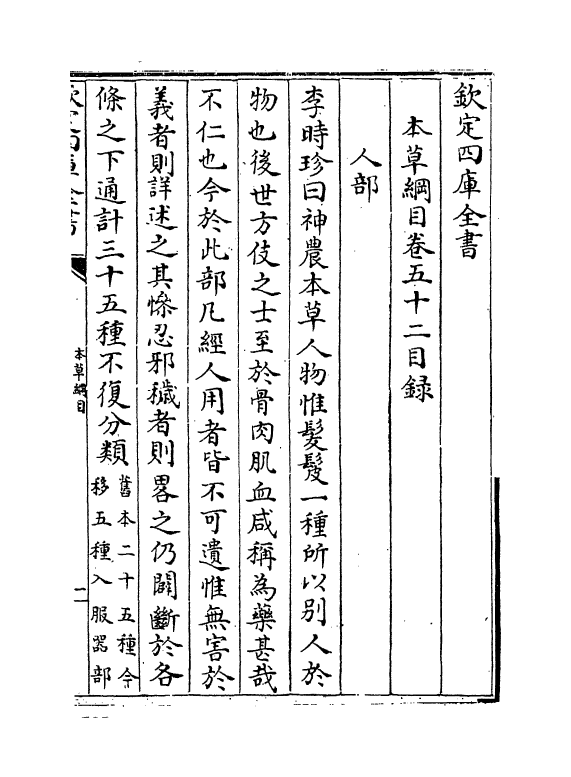 欽定四庫全書
本草綱目卷五十二目録
人部
李時珍曰神農本草人物惟髮髲一種所以别人於
物也後世方伎之士至於骨肉肌血咸稱為藥甚哉
不仁也今於此部凡經人用者皆不可遺惟無害於
義者則詳述之其慘忍邪穢者則畧之仍闢斷於各
條之下通計三十五種不復分類舊本二十五種今
移五種入服器部
欽定四庫全書
本草綱目